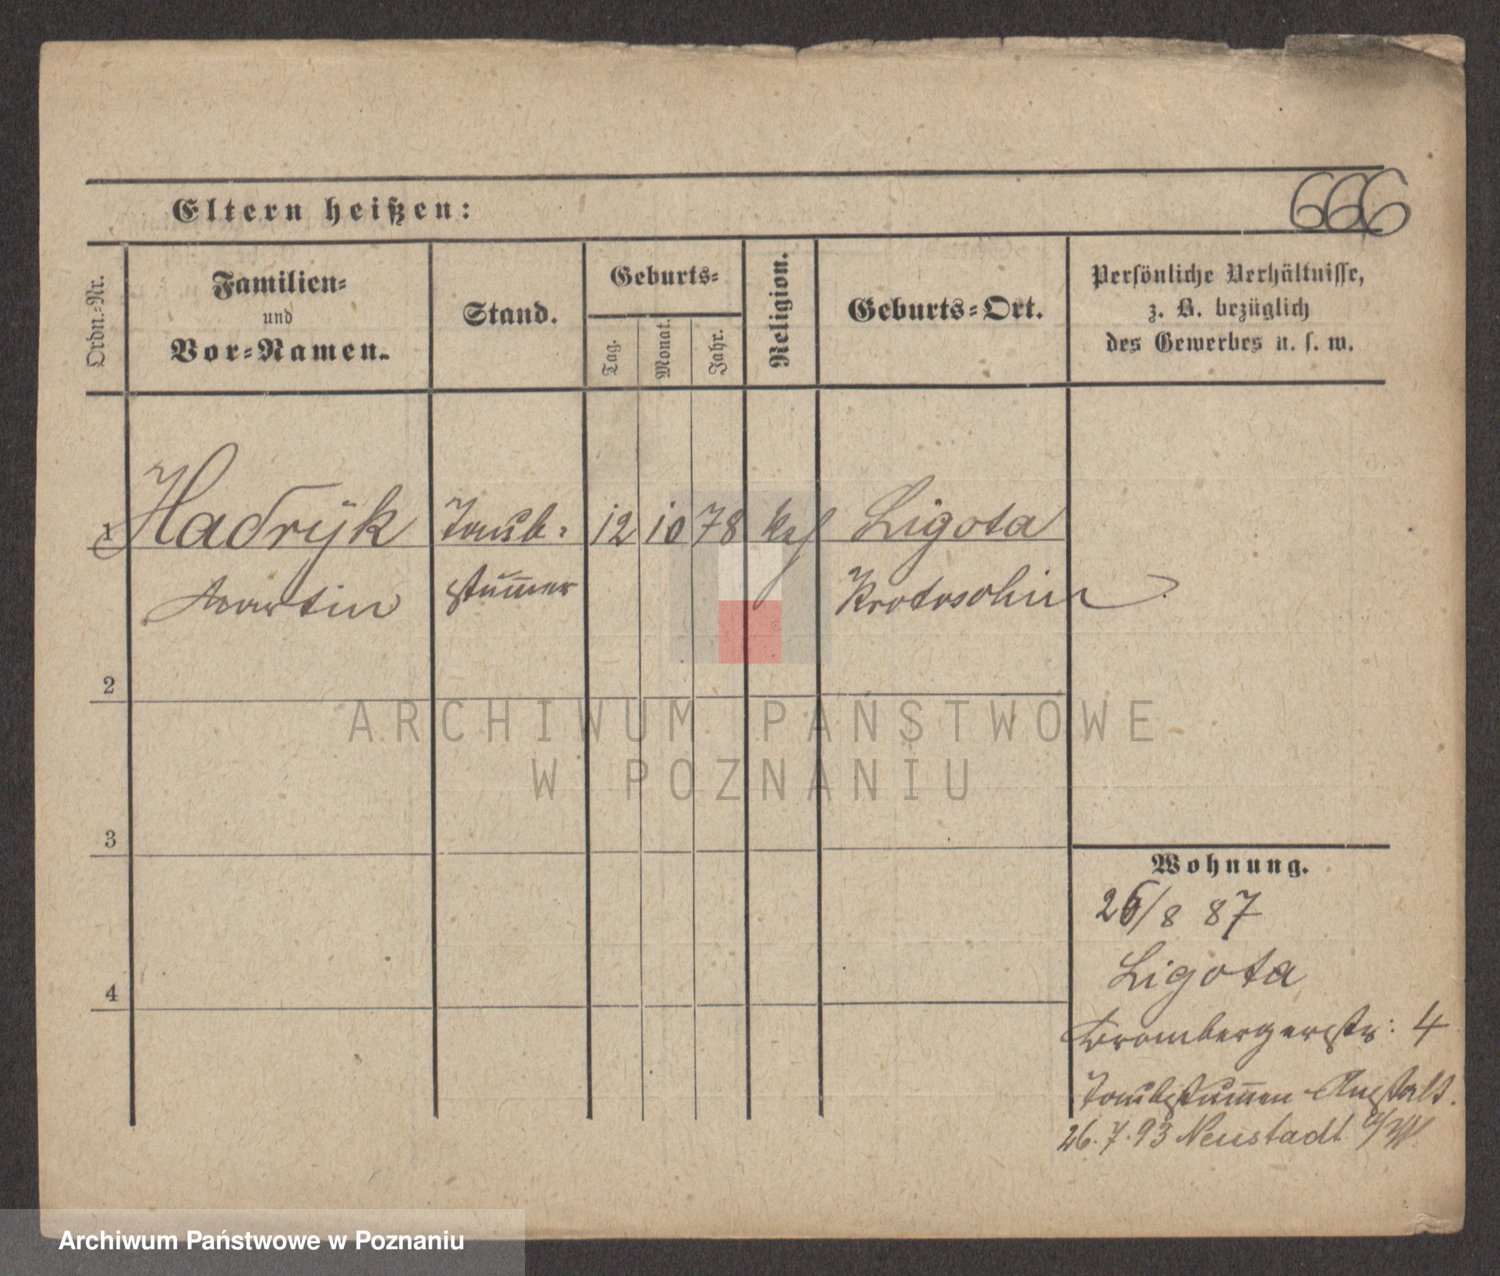 666
Eltern heißen:
Ordn.-Nr.
Familien-
und
Vor-Namen.
Stand.
Geburts-
Tag.
Monat.
Jahr.
Religion.
Geburts-Ort.
Persönliche Verhältnisse,
z. B. bezüglich
des Gewerbes u. s. w.
1 Hadryk Taub- 12 10 78 kaf Ligota
Martin stummer Krotoschin
2
3
4
ARCHIWUM PAŃSTWOWE
W POZNANIU
Wohnung.
26/8 87
Ligota
Brombergerstr: 4
Taubstummen-Anstalt.
26.7.93 Neustadt a/W.
Archiwum Państwowe w Poznaniu